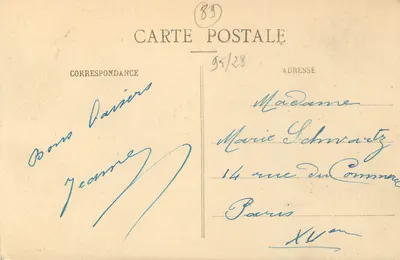 89
CARTE POSTALE
95/28
CORRESPONDANCE
ADRESSE
Bons baisers
Jeanne
Madame
Marie Schwartz
14 rue du Commerce
Paris
XVem